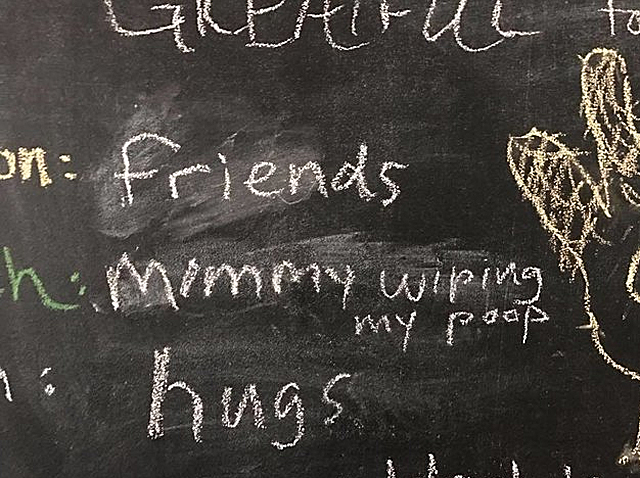 GREATFUL fo
on: friends
h: mommy wiping
my poop
n: hugs